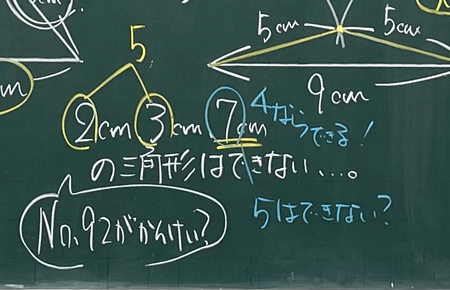 5cm 5cm
9cm
5
2cm 3cm 7cm
4ならできる!
の三角形はできない…。
5はできない?
No.92がかんけい?